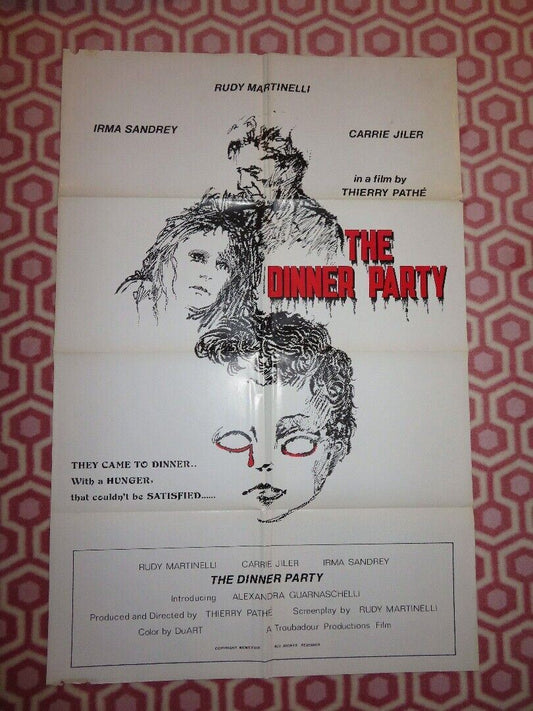 RUDY MARTINELLI
IRMA SANDREY
CARRIE JILER
in a film by
THIERRY PATHÉ
THE
DINNER PARTY
THEY CAME TO DINNER..
With a HUNGER,
that couldn't be SATISFIED......
RUDY MARTINELLI CARRIE JILER IRMA SANDREY
THE DINNER PARTY
Introducing ALEXANDRA GUARNASCHELLI
Produced and Directed by THIERRY PATHÉ Screenplay by RUDY MARTINELLI
Color by DuART A Troubadour Productions Film
COPYRIGHT ALL RIGHTS RESERVED